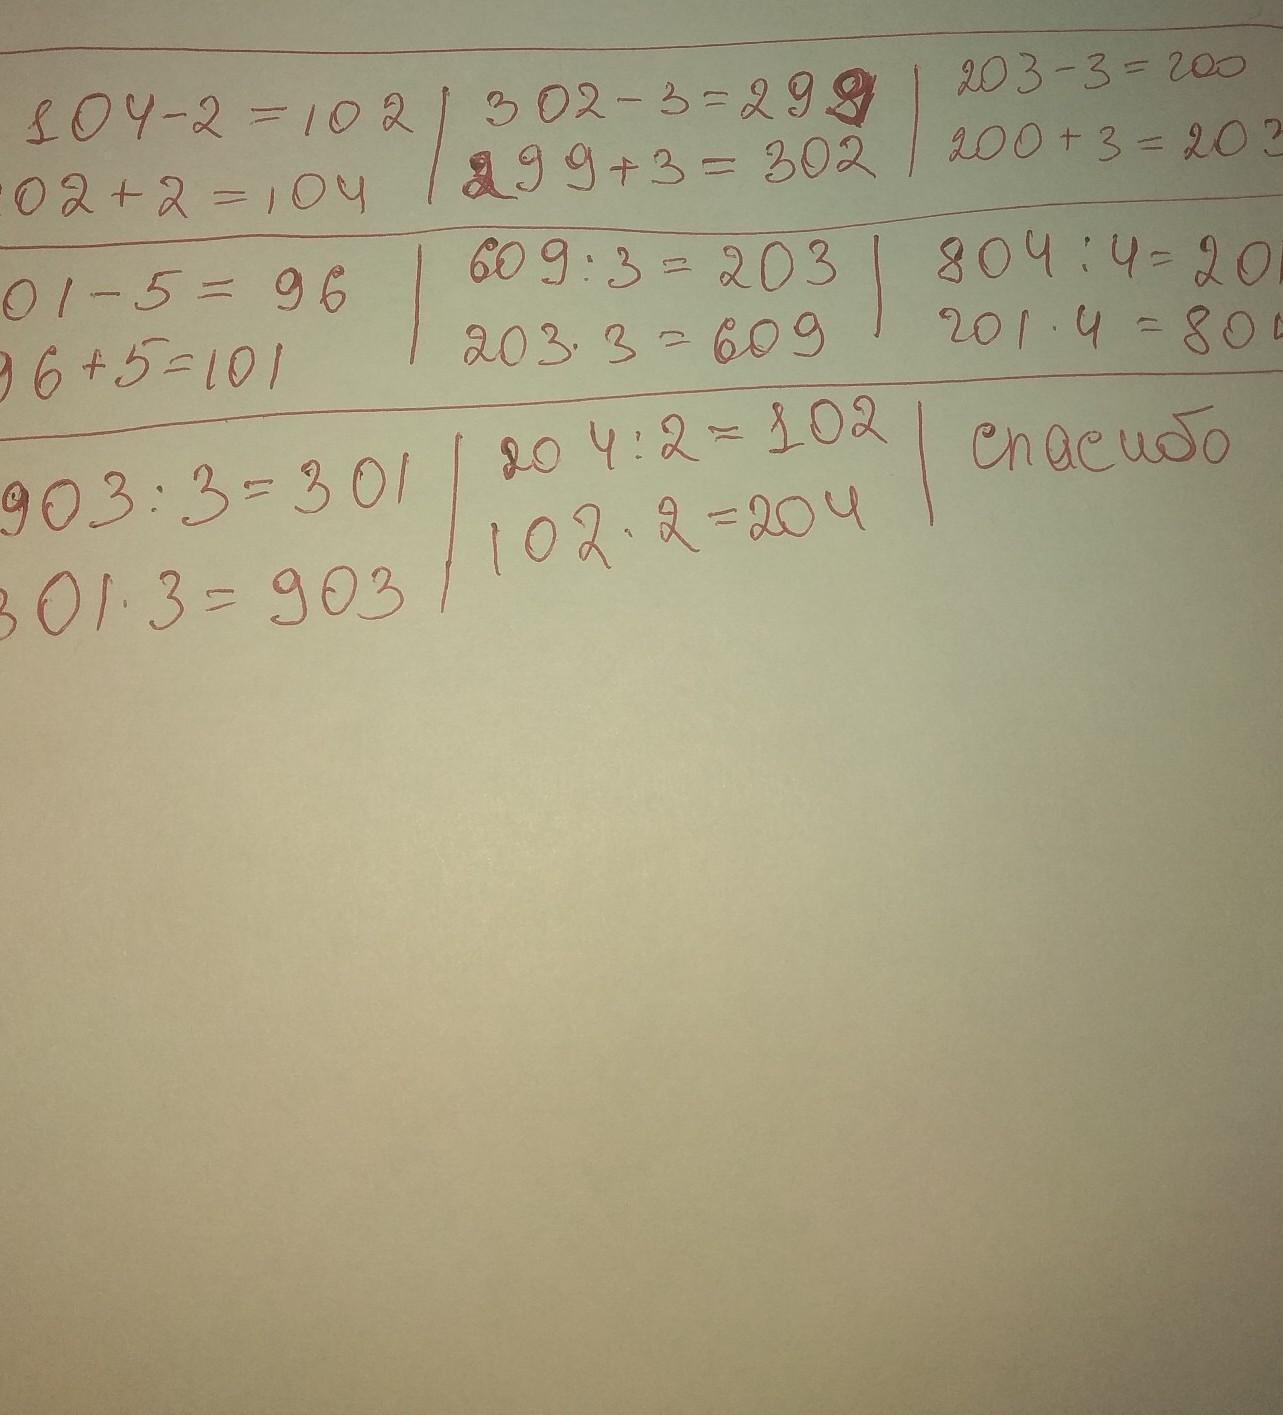 104-2=102
02+2=104
302-3=299
299+3=302
203-3=200
200+3=203
01-5=96
96+5=101
609:3=203
203·3=609
804:4=201
201·4=804
903:3=301
301·3=903
204:2=102
102·2=204
спасибо